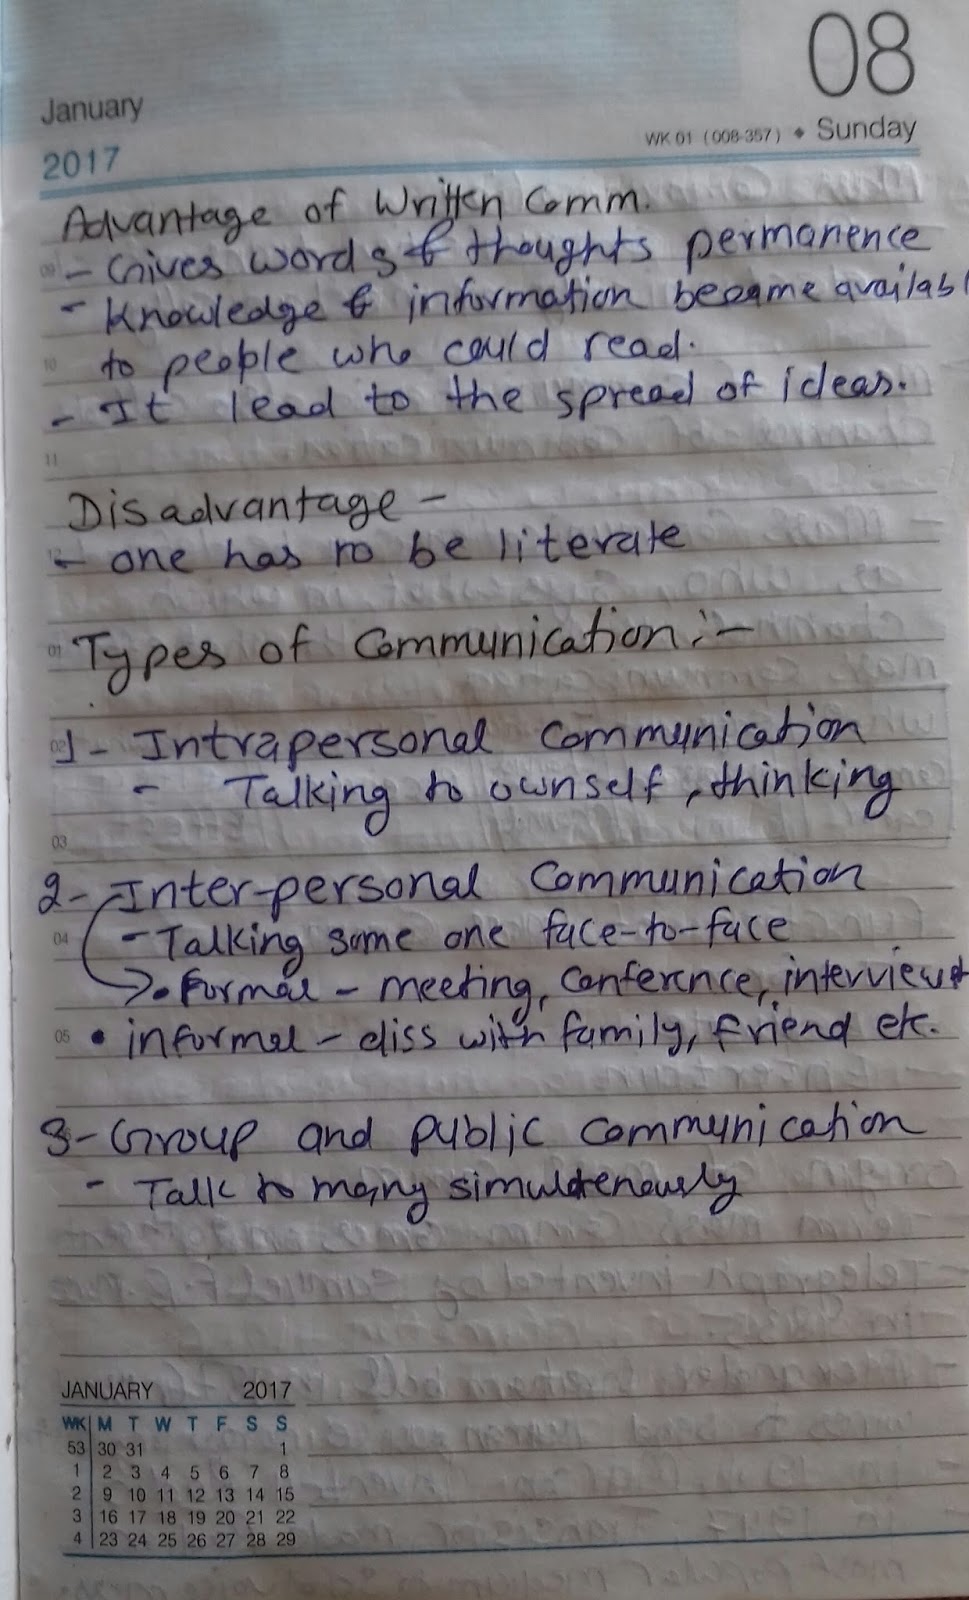 08
January
WK 01 (008-357) ♦ Sunday
2017
Advantage of Written Comm.
09 - Gives words & thoughts permanence
- Knowledge & information became availabl
10 to people who could read.
- It lead to the spread of ideas.
11
Disadvantage -
12 - one has to be literate
01 Types of Communication :-
02 1- Intrapersonal Communication
- Talking to ownself, thinking
03
2- Inter-personal Communication
04 - Talking some one face-to-face
→ • Formal - meeting, Conference, interview
05 • informal - diss with family, friend etc.
3- Group and public communication
- Talk to many simultenously
JANUARY 2017
WK M T W T F S S
53 30 31 1
1 2 3 4 5 6 7 8
2 9 10 11 12 13 14 15
3 16 17 18 19 20 21 22
4 23 24 25 26 27 28 29